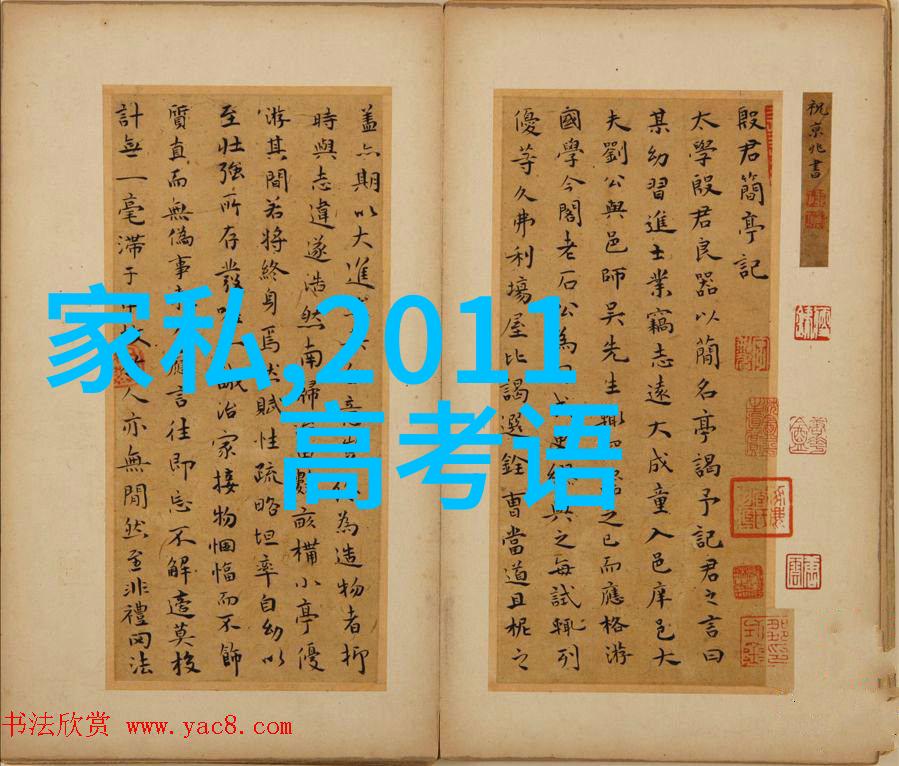 祝京兆書
殷君簡亭記
太學殷君民器以簡名亭謁予記君之言曰
某幼習進士業竊志遠大成童入邑庠邑大
夫劉公與邑師吳先生之已而應格游
國學今閣老石公為與之每試輒列
優等久弗利場屋比謁選銓曹當道且柅之
蓋六期以大進為造物者抑
時與志違遂浩然南歸數畝構小亭優
游其間若將終身焉然賦性疏略坦率自幼以
至壯強所存發誠治家接物悃愊而不飾
質真而無偽事應言往即忘不解莫校
計無一毫滯于人亦無閒然至非禮罔法
家私,2011
高考语
书法欣赏 www.yac8.com